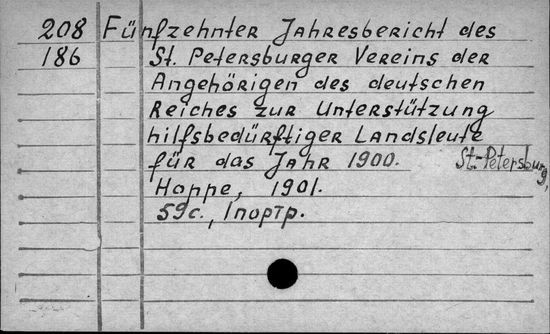 208 Fünfzehnter Jahresbericht des
186 St. Petersburger Vereins der
Angehörigen des deutschen
Reiches zur Unterstützung
hilfsbedürftiger Landsleute
für das Jahr 1900. St.-Petersburg,
Hoppe, 1901.
59с., 1 портр.